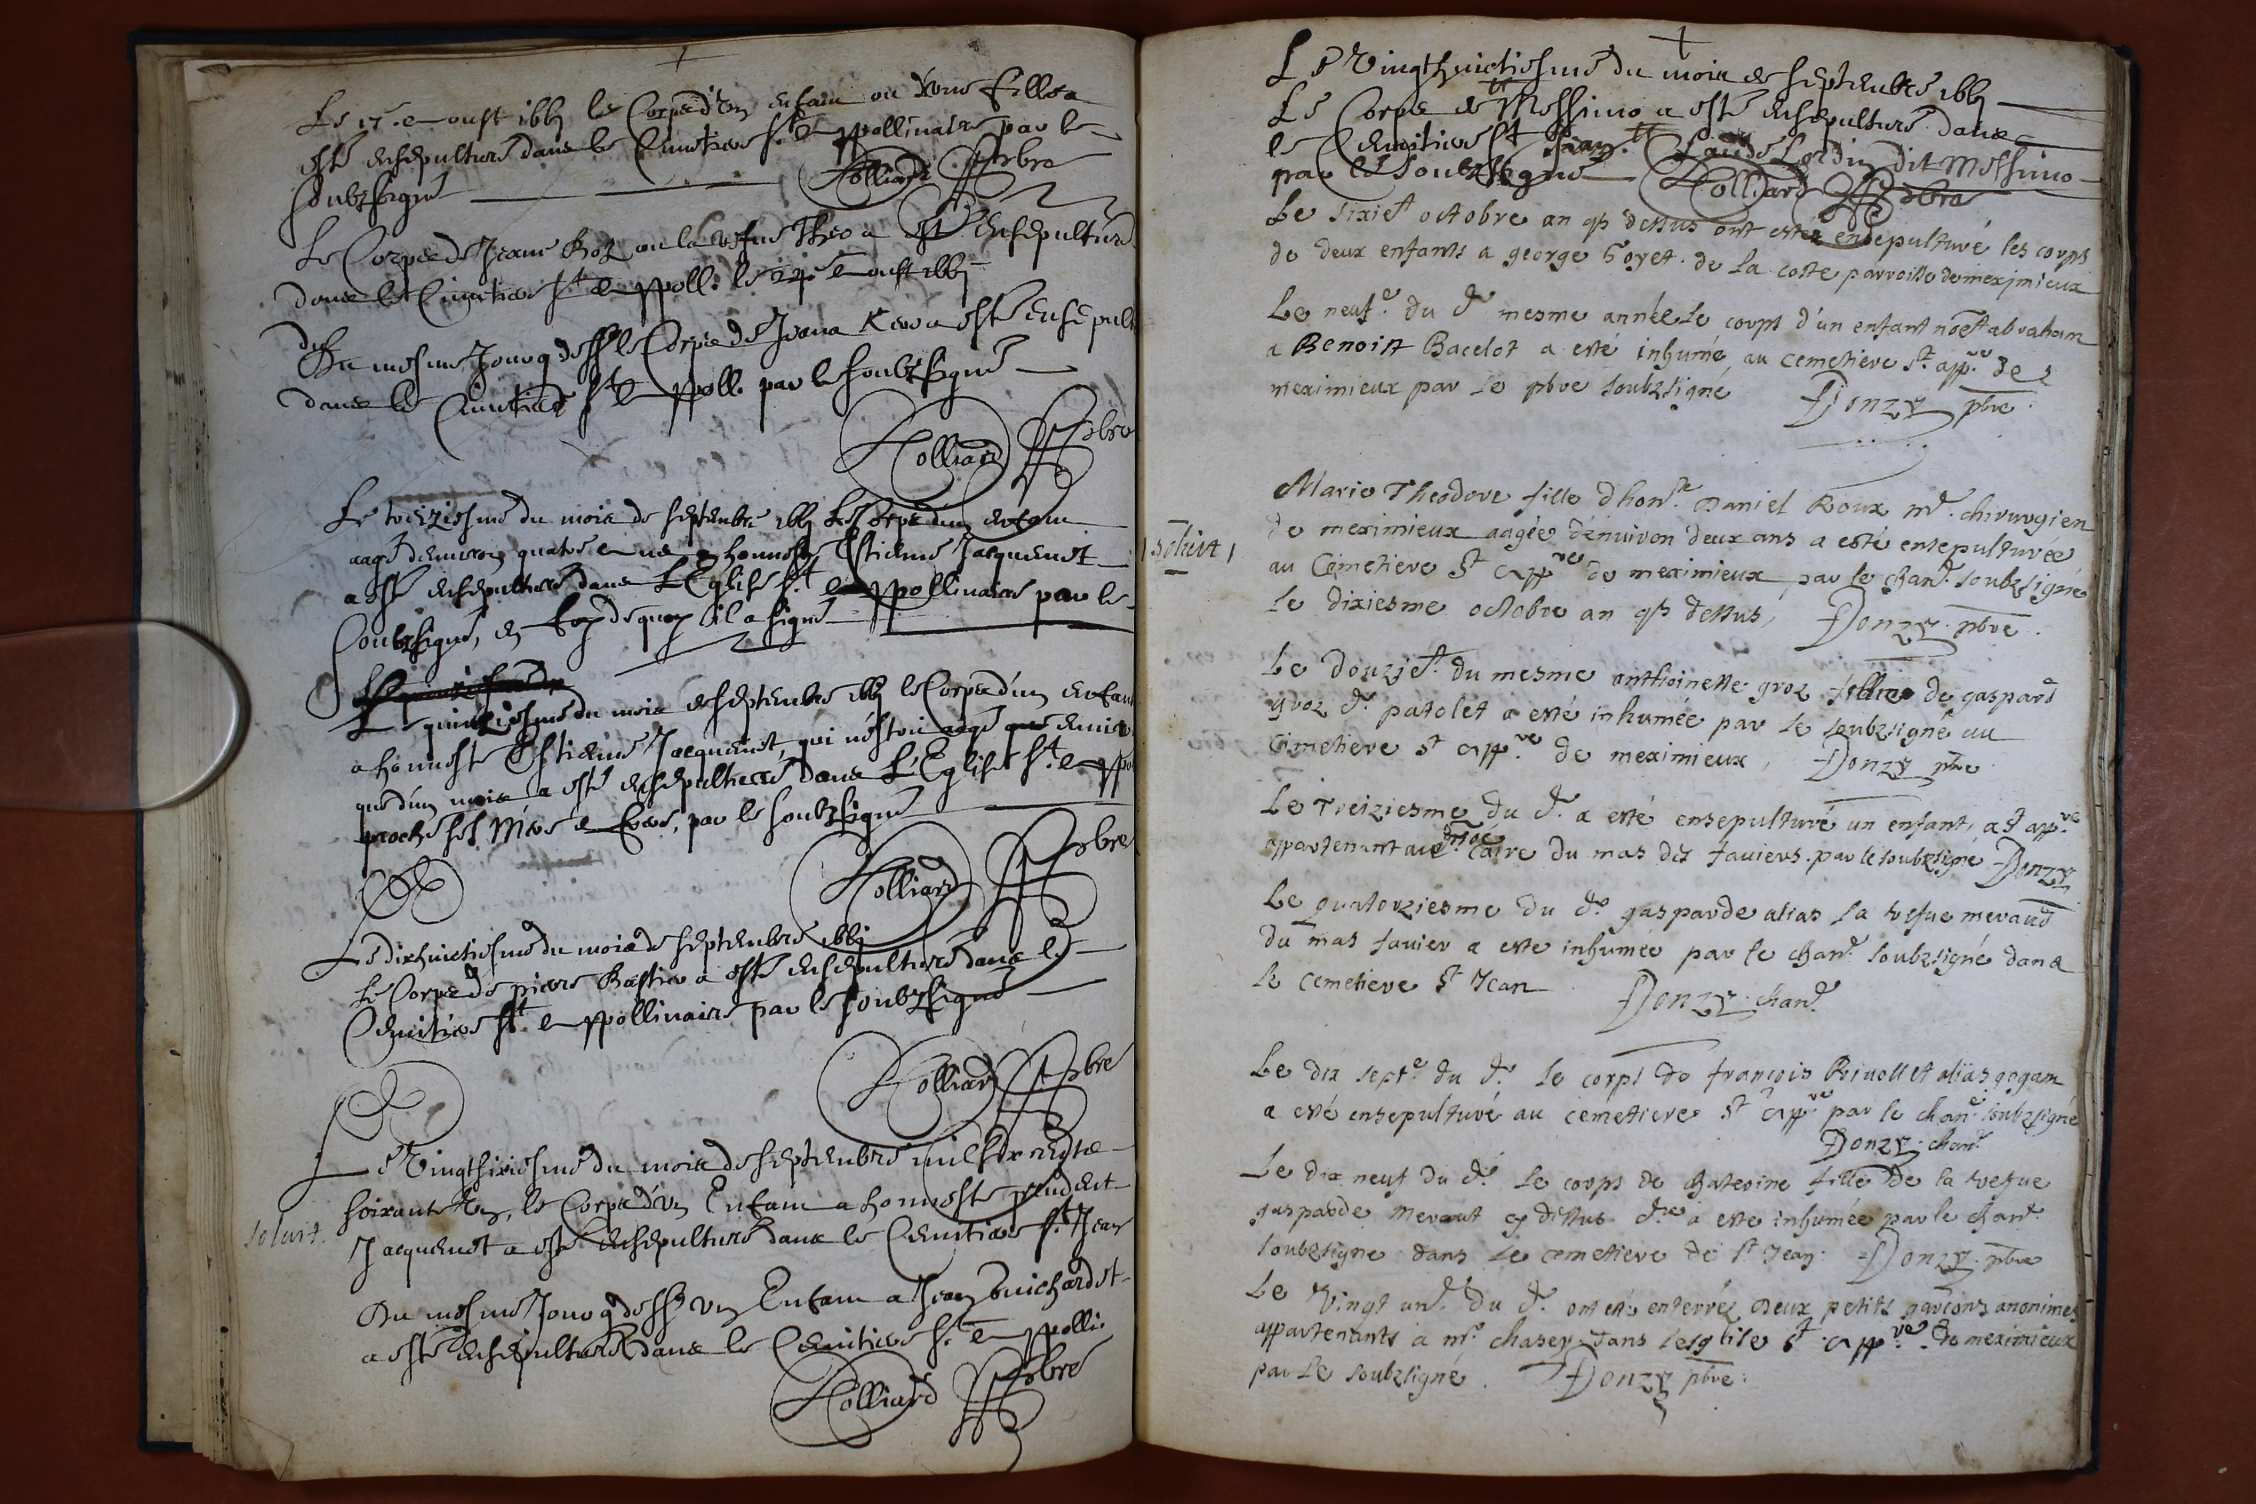 Le 17e aoust 1661 le Corps d'un enfant ou d'une fille a
esté ensepulturé dans le Cimetiere St Appollinaire par le
soubzsigné Colliard pbre
Le Corps de Jeane Roz ou la vefue Theo a esté ensepulturé
dans le Cimetiere St Appoll. le aoust 1661
Du mesme Jour q dess. le Corps de Jeana a esté ensepult
dans le Cimetiere St Appoll. par le soubzsigné
Colliard pbre
Le treiziesme du mois de septembre 1661 Le Corps d'un enfan
aagé d'enuiron quatre a honneste Estienne Jacquemet
a esté ensepulturé dans L'Eglise St Appollinaire par le
soubzsigné, en foy de quoy il a signé
Le quinziesme du mois de septembre 1661 le Corps d'un enfan
a honneste Estienne Jacquemet, qui n'estoit aagé que d'enuir
que d'un mois a esté ensepulturé dans L'Eglise St Appo
proche ses Mere e frere, par le soubzsigné
Colliard pbre
Le dixhuictiesme du mois de septembre 1661
Le Corps de piere Bastier a esté ensepulturé dans le
Cemitiere St Appollinaire par le soubzsigné
Colliard pbre
Le Vingtsixiesme du mois de septembre mil six cents
soixante un, le Corps d'un Enfan a honneste prudent
soluit.
Jacquemet a esté ensepulturé dans le Cemitiere St Jean
Du mesme Jour q dess. un Enfan a Jean Guichardet
a esté ensepulturé dans le Cemitiere St Appolli.
Colliard pbre
Le Vingthuictiesme du mois de septembre 1661
Le Corps de Messimo a esté ensepulturé dans
le Cemitiere St Jean. Claude Lordin dit Messimo
par le soubzsigné Colliard pbre
Le sixie. octobre an q dessus ont estés ensepulturé les corps
de deux enfants a george Goyet de la coste parroisse de meximieux
Le neufe du de mesme année le corps d'un enfant nomé abraham
a Benoist Bacelot a esté inhumé au cemetiere St app.re de
meximieux par le pbre soubzsigné Donzy pbre.
Marie Theodore fille d'hon.te Daniel Roux me. chirurgien
de meximieux aagée d'enuiron deux ans a esté ensepulturée
soluit
au Cimetiere St App.re de meximieux par le chan.e soubzsigné
le dixiesme octobre an q dessus, Donzy. pbre.
Le Douzie. du mesme anthoinette groz fillie de gaspard
groz de. patolet a esté inhumée par le soubzsigné au
Cimetiere St App.re de meximieux, Donzy pbre
Le Treiziesme du de. a esté ensepulturé un enfant, a St app.re
appartenant au caire du mas des fauiers. par le soubzsigné Donzy
Le quatorziesme du de. gasparde alias la vefue meraud
du mas fauier a esté inhumée par le chan.e soubzsigné dans
le cemetiere St Jean Donzy. chan.e
Le dix septe du de. le corps de françois Riuollet alias gogam
a esté ensepulturé au cemetiere St App.re par le chan.e soubzsigné
Donzy. chan.e
Le dix neuf du de le corps de Catherine fille de la vefue
gasparde meraut cy dessus d.te a esté inhumée par le chan.e
soubzsigne dans le cemetiere de St Jean. Donzy. pbre
Le Vingt un.e du de. ont esté enterréz Deux petits garçons anonimes
appartenants a mr. chasey dans l'esglise St App.re de meximieux
par le soubzsigné. Donzy pbre.